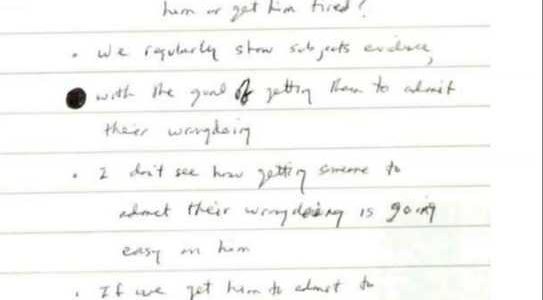 him or get him fired?
· we regularly show subjects evidence,
with the goal of getting them to admit
their wrongdoing
· I don't see how getting someone to
admit their wrongdoing is going
easy on him
· If we get him to admit to